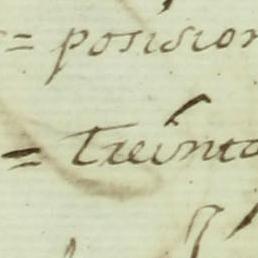 = posision
= treinta